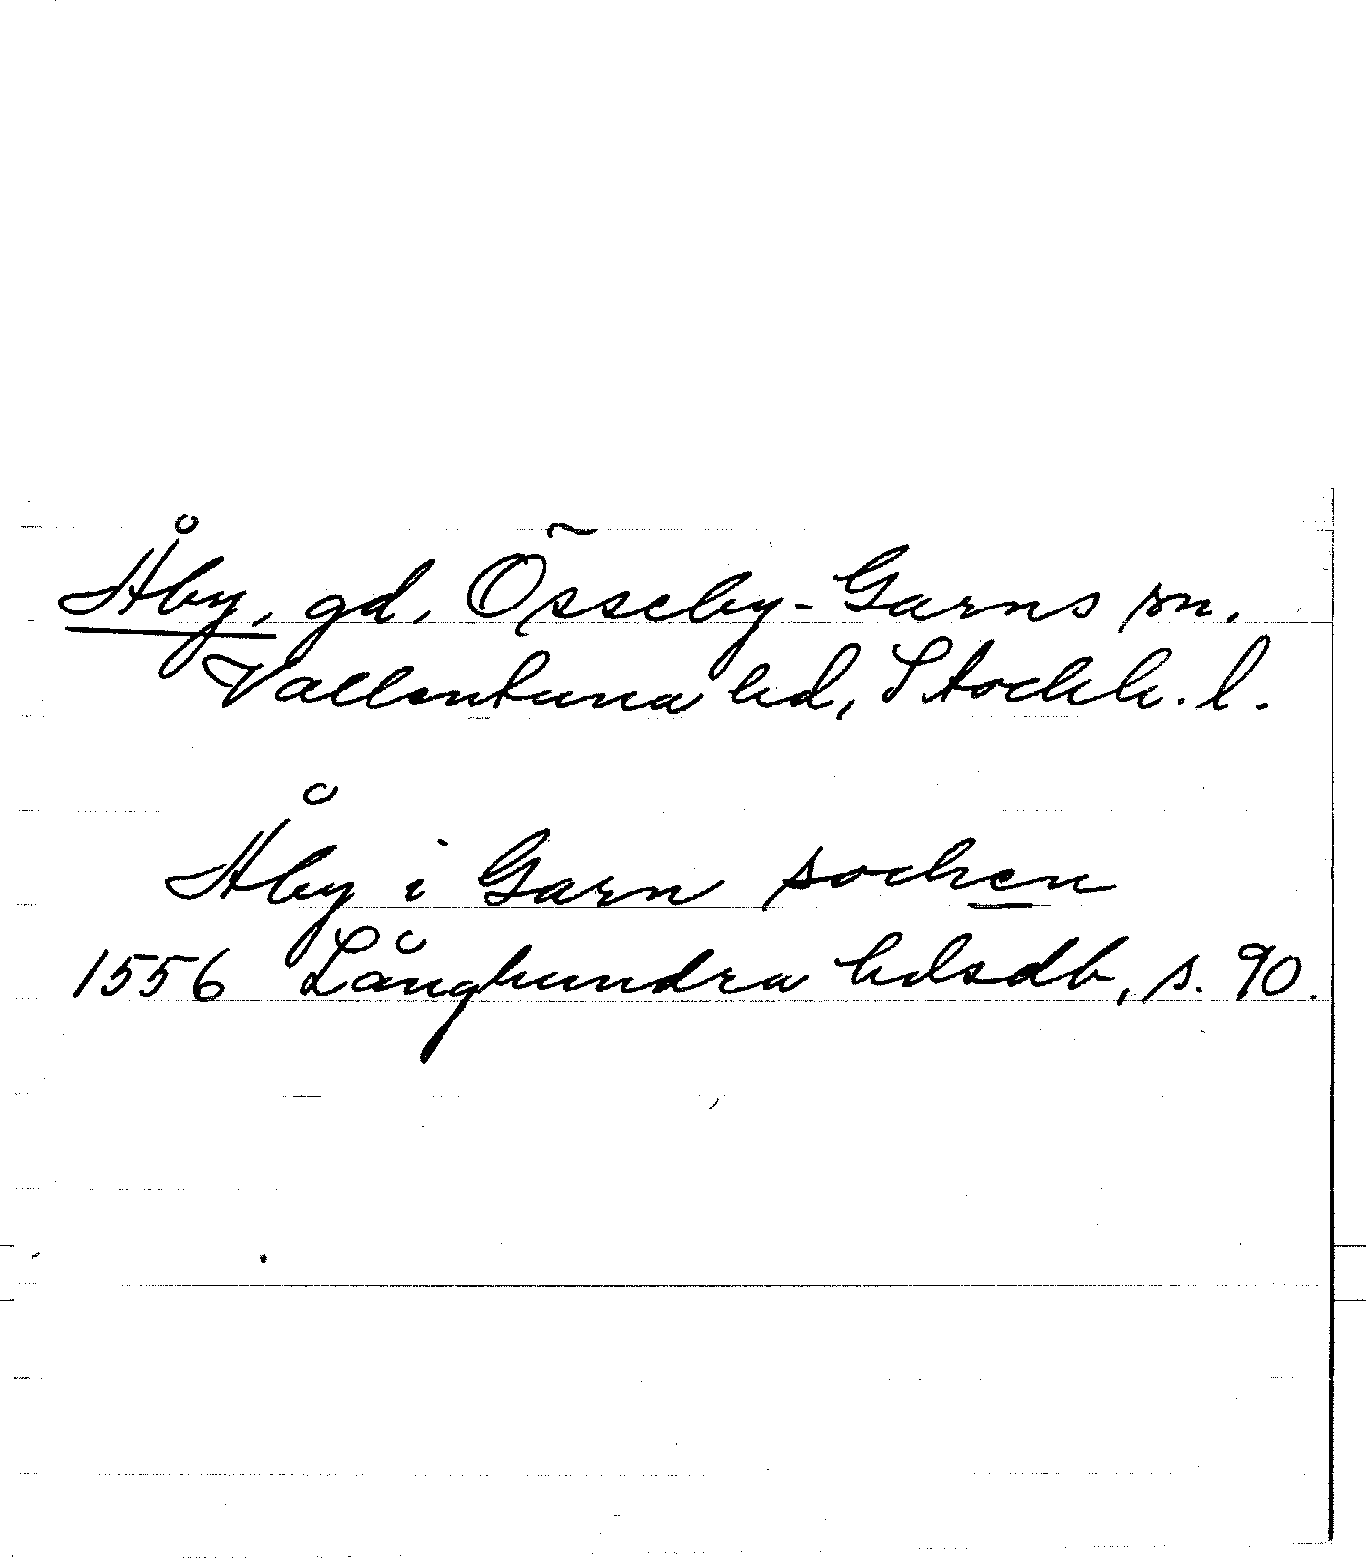 Åby, gd, Össeby-Garns sn.
Vallentuna hd, Stockh. l.
Åby i Garn socken
1556 Långhundra hdsdb, s. 90.